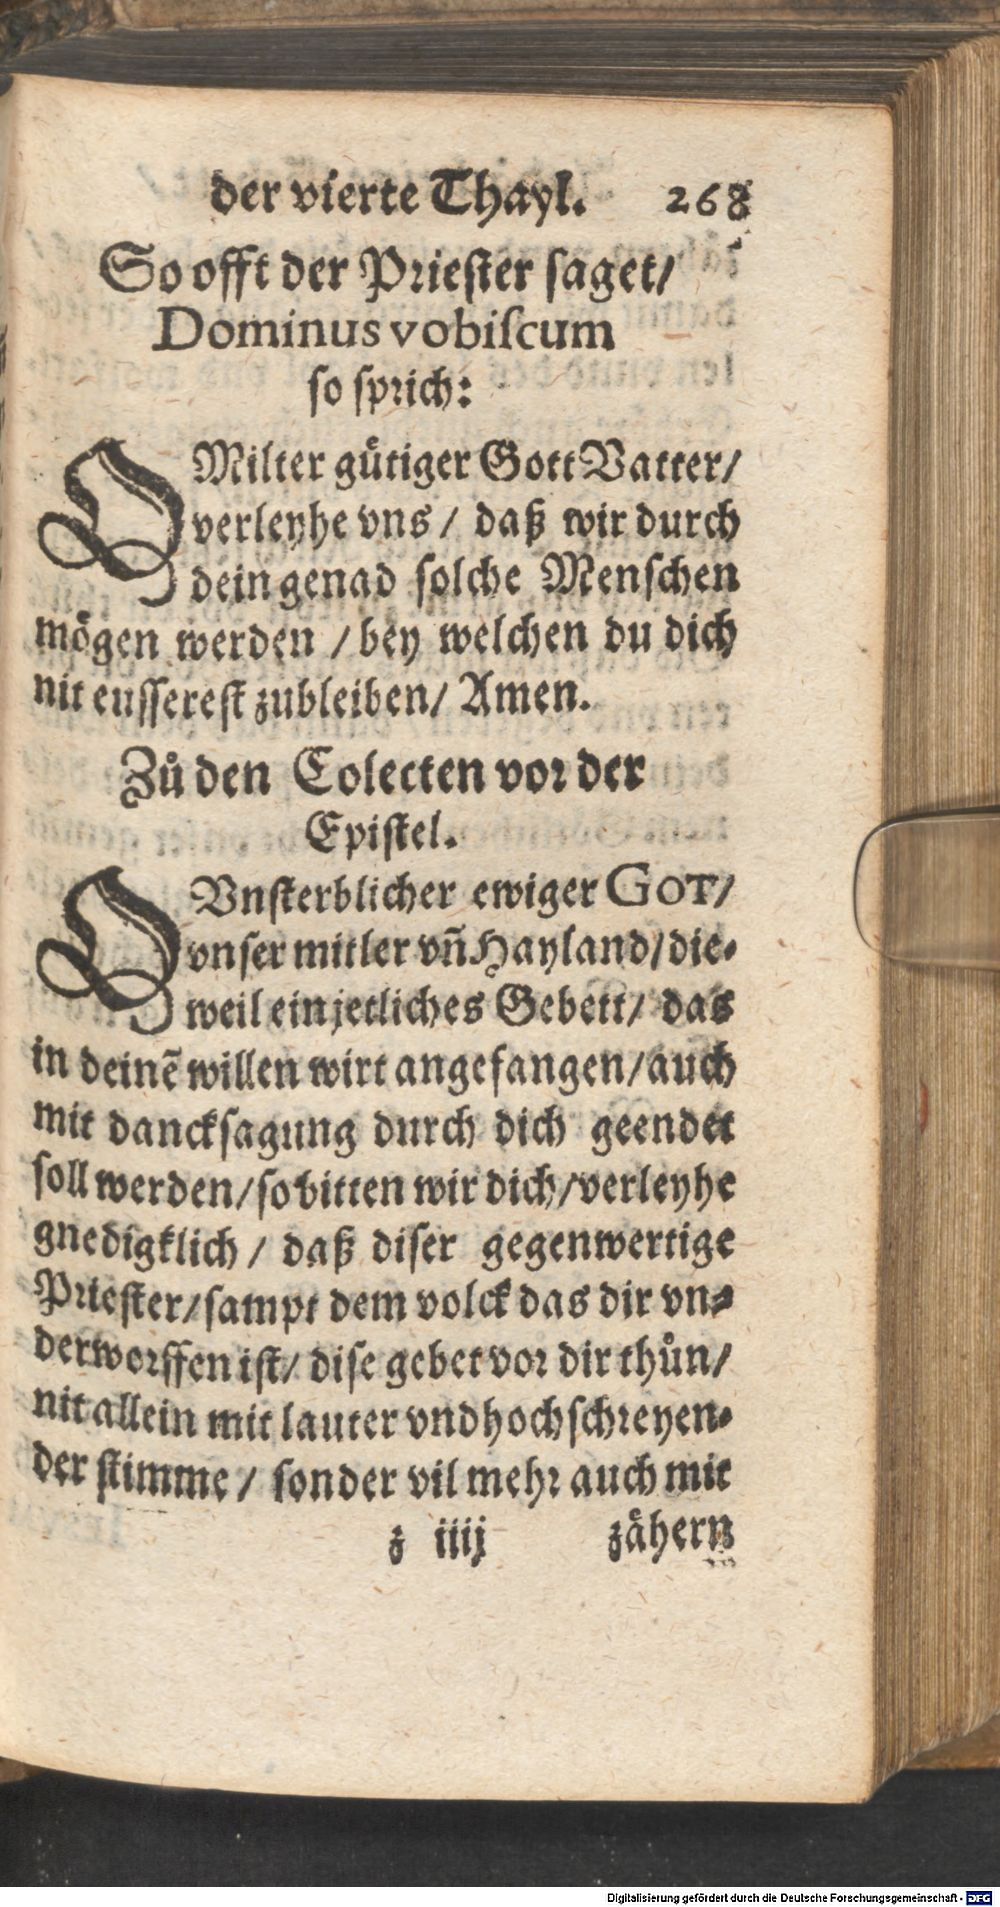 der vierte Thayl. 268
So offt der Priester saget/
Dominus vobiſcum
so sprich:
O Milter guͤtiger Gott Vatter/
verleyhe vns / daß wir durch
dein genad solche Menschen
moͤgen werden / bey welchen du dich
nit eusserest zubleiben/ Amen.
Zuͦ den Colecten vor der
Epistel.
O Vnsterblicher ewiger GOT/
vnser mitler vñ Hayland/die⸗
weil ein jetliches Gebett/ das
in deinē willen wirt angefangen/auch
mit dancksagung durch dich geendet
soll werden/so bitten wir dich/verleyhe
gnedigklich / daß diser gegenwertige
Priester/sampt dem volck das dir vn⸗
derworffen ist/ dise gebet vor dir thuͦn/
nit allein mit lauter vnd hoch schreyen⸗
der stimme / sonder vil mehr auch mit
z iiij zaͤhern
Digitalisierung gefördert durch die Deutsche Forschungsgemeinschaft - DFG